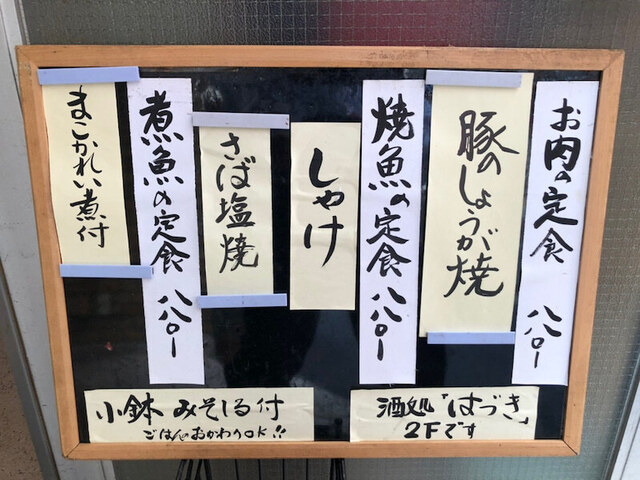 お肉の定食 八八〇ー
豚のしょうが焼
焼魚の定食 八八〇ー
しゃけ
さば塩焼
煮魚の定食 八八〇ー
まこかれい煮付
小鉢 みそしる付
ごはんのおかわりOK!!
酒処「はづき」
2Fです